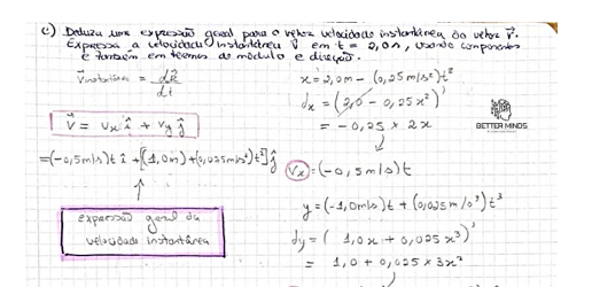 c) Deduza uma expressão geral para o vetor velocidade instantânea do vetor r⃗.
Expressa a velocidade instantânea v⃗ em t = 2,0s, usando componentes
e também em termos de módulo e direção.
v⃗ instantânea = dR⃗/dt
v⃗ = vx î + vy ĵ
=(-0,5m/s)t î +[(1,0m)+(0,025m/s²)t²]ĵ
expressão geral da
velocidade instantânea
x=2,0m - (0,25m/s²)t²
dx = (2,0 - 0,25x²)'
= -0,25 × 2x
vx =(-0,5m/s)t
y=(-1,0m/s)t + (0,025m/s³)t³
dy=( 1,0x + 0,025x³)'
= 1,0 + 0,025 × 3x²
BETTER MINDS